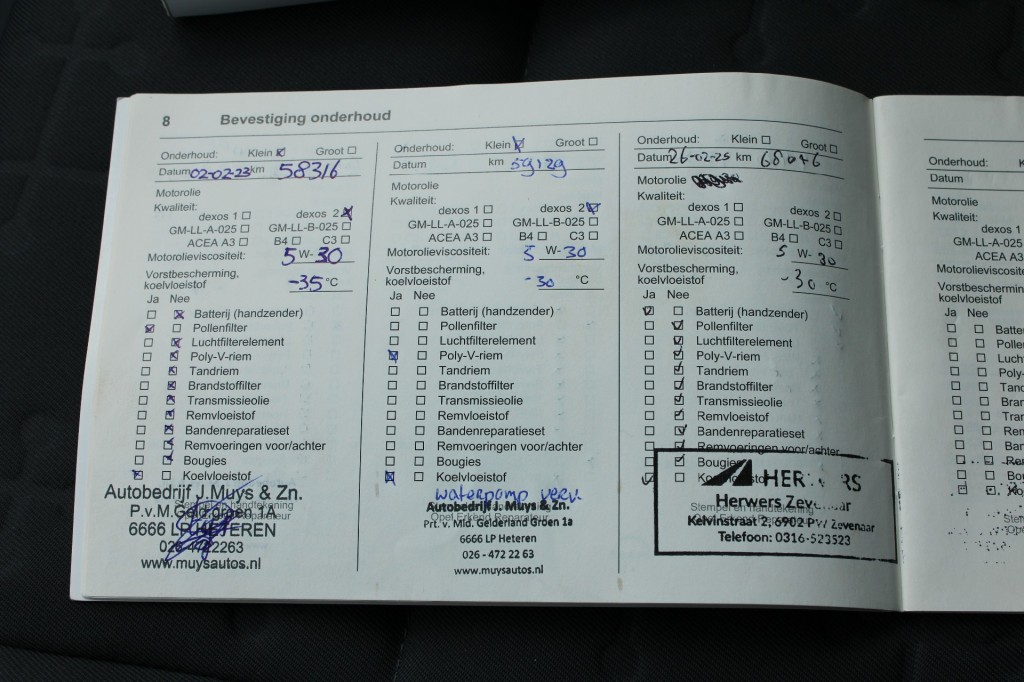 8 Bevestiging onderhoud
Onderhoud: Klein Groot
Datum 02-02-23 km 58316
Motorolie
Kwaliteit:
dexos 1 dexos 2
GM-LL-A-025 GM-LL-B-025
ACEA A3 B4 C3
Motorolieviscositeit: 5 W- 30
Vorstbescherming,
koelvloeistof -35 °C
Ja Nee
Batterij (handzender)
Pollenfilter
Luchtfilterelement
Poly-V-riem
Tandriem
Brandstoffilter
Transmissieolie
Remvloeistof
Bandenreparatieset
Remvoeringen voor/achter
Bougies
Koelvloeistof
Autobedrijf J.Muys & Zn.
P.v.M.Geld.groen 1A
6666 LP HETEREN
026-4722263
www.muysautos.nl
Onderhoud: Klein Groot
Datum km 59129
Motorolie
Kwaliteit:
dexos 1 dexos 2
GM-LL-A-025 GM-LL-B-025
ACEA A3 B4 C3
Motorolieviscositeit: 5 W- 30
Vorstbescherming,
koelvloeistof -30 °C
Ja Nee
Batterij (handzender)
Pollenfilter
Luchtfilterelement
Poly-V-riem
Tandriem
Brandstoffilter
Transmissieolie
Remvloeistof
Bandenreparatieset
Remvoeringen voor/achter
Bougies
Koelvloeistof
waterpomp verv.
Autobedrijf J. Muys & Zn.
Opel Erkend Reparateur
Prt. v. Mld. Gelderland Groen 1a
6666 LP Heteren
026 - 472 22 63
www.muysautos.nl
Onderhoud: Klein Groot
Datum 26-02-25 km 68046
Motorolie
Kwaliteit:
dexos 1 dexos 2
GM-LL-A-025 GM-LL-B-025
ACEA A3 B4 C3
Motorolieviscositeit: 5 W- 30
Vorstbescherming,
koelvloeistof -30 °C
Ja Nee
Batterij (handzender)
Pollenfilter
Luchtfilterelement
Poly-V-riem
Tandriem
Brandstoffilter
Transmissieolie
Remvloeistof
Bandenreparatieset
Remvoeringen voor/achter
Bougies
Koelvloeistof
HERWERS
Herwers Zevenaar
Stempel en handtekening
Kelvinstraat 2, 6902 PW Zevenaar
Telefoon: 0316-523523
Onderhoud:
Datum
Motorolie
Kwaliteit:
dexos 1
GM-LL-A-025
ACEA A3
Motorolieviscositeit
Vorstbescherming
koelvloeistof
Ja Nee